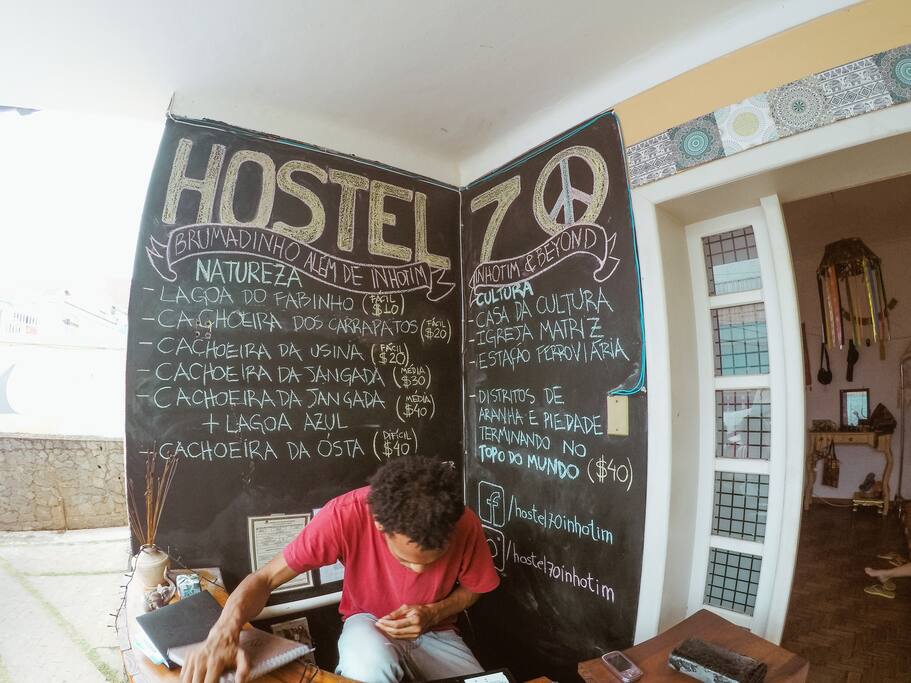 HOSTEL
BRUMADINHO ALÉM DE INHOTIM
NATUREZA
- LAGOA DO FABINHO (FÁCIL $10)
- CACHOEIRA DOS CARRAPATOS (FÁCIL $20)
- CACHOEIRA DA USINA (FÁCIL $20)
- CACHOEIRA DA JANGADA (MÉDIA $30)
- CACHOEIRA DA JANGADA (MÉDIA $40)
+ LAGOA AZUL
- CACHOEIRA DA ÓSTA (DIFÍCIL $40)
7
INHOTIM & BEYOND
CULTURA
- CASA DA CULTURA
- IGREJA MATRIZ
- ESTAÇÃO FERROVIÁRIA
- DISTRITOS DE
ARANHA E PIEDADE
TERMINANDO NO
TOPO DO MUNDO ($40)
f /hostel70inhotim
/hostel70inhotim